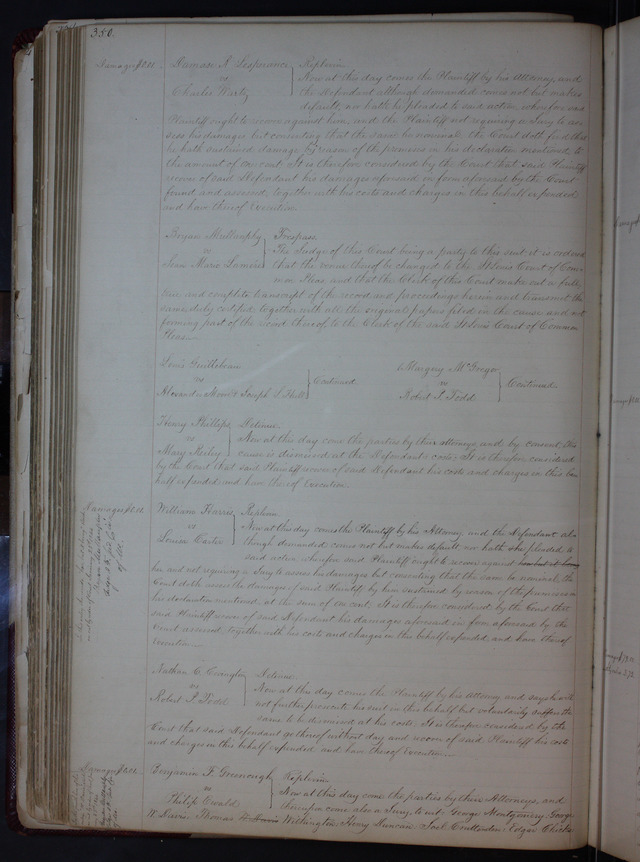 350.
Damages $0.01
Damase A Lesperance
vs
Charles Wurtz
Replevin
Now at this day comes the Plaintiff by his Attorney, and
the Defendant although demanded comes not but makes
default, nor hath he pleaded to said action wherefore said
Plaintiff ought to recover against him, and the Plaintiff not requiring a Jury to as-
sess his damages but consenting that the same be nominal the Court doth find that
he hath sustained damage by reason of the premises in his declaration mentioned to
the amount of one cent. It is therefore considered by the Court that said Plaintiff
recover of said Defendant his damages aforesaid in form aforesaid by the Court
found and assessed, together with his costs and charges in this behalf expended
and have thereof Execution.
Bryan Mullanphy
vs
Trespass
The Judge of this Court being a party to this suit it is ordered
that the venue thereof be changed to the St Louis Court of Com-
mon Pleas and that the Clerk of this Court make out a full
true and complete transcript of the record and proceedings herein and transmit the
same duly certified together with all the original papers filed in the cause and not
forming part of the record thereof, to the Clerk of the said St Louis Court of Common
Pleas.
Louis
vs
Joseph S. Hull
Continued
Margary McGregor
vs
Robert S. Todd
Continued
Henry Phillips
vs
Mary
Detinue
Now at this day come the parties by their attorneys, and by consent this
cause is dismissed at the Defendant's costs. It is therefore considered
by the Court that said Plaintiff recover of said Defendant his costs and charges in this be-
half expended and have thereof Execution.
Damages $0.01
William Harris
vs
Louisa Carter
Replevin
Now at this day comes the Plaintiff by his Attorney, and the Defendant al-
though demanded comes not but makes default nor hath she pleaded to
said action wherefore said Plaintiff ought to recover against
her and not requiring a Jury to assess his damages but consenting that the same be nominal, the
Court doth assess the damages of said Plaintiff by him sustained by reason of the premises in
his declaration mentioned at the sum of one cent. It is therefore considered by the Court that
said Plaintiff recover of said Defendant his damages aforesaid in form aforesaid by the
Court assessed, together with his costs and charges in this behalf expended, and have thereof
Execution.
Nathan C. Covington
vs
Robert S. Todd
Detinue
Now at this day comes the Plaintiff by his Attorney and says he will
not further prosecute his suit in this behalf but voluntarily suffers the
same to be dismissed at his costs. It is therefore considered by the
Court that said Defendant go thereof without day and recover of said Plaintiff his costs
and charges in this behalf expended and have thereof Execution.
Damages $0.01
Benjamin F. Greenough
vs
Philip Ewald
Replevin
Now at this day come the parties by their Attorneys, and
thereupon come also a Jury to wit: George Montgomery, George
W. Davis, Thomas Withington, Henry Duncan, Joel Crittenden, Edgar